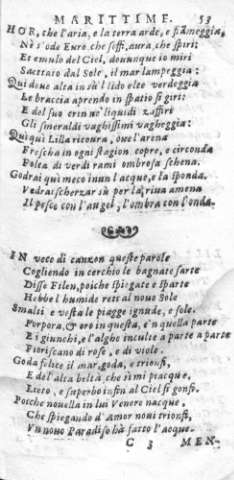 MARITTIME. 53
HOR, che l'aria, e la terra arde, e fiammeggia,
Nè s'ode Euro che soffi, aura, che spiri;
Et emulo del Ciel, dovunque io miri
Saettato dal Sole, il mar lampeggia:
Qui dove alta in sù'l lido elce verdeggia
Le braccia aprendo in spatiosi giri;
E del suo crin ne' liquidi zaffiri
Gli smeraldi vaghissimi vagheggia:
Qui qui Lilla ricovra, ove l'arena
Fresca in ogni stagion copre, e circonda
Folta di verdi rami ombrosa schena.
Godrai quì meco in un l'acque, e la sponda.
Vedrai scherzar sù per la riva amena
Il pesce con l'augel, l'ombra con l'onda.
IN vece di canzon queste parole
Cogliendo in cerchio le bagnate sarte
Disse Filen, poiche spiegate e sparte
Hebbe l'humide reti al novo Sole
Smalti e vesta le piagge ignude, e sole.
Porpora, & oro in questa, e'n quella parte
E i giunchi, e l'alghe inculte a parte a parte
Fioriscano di rose, e di viole.
Goda felice il mar, goda, e trionfi,
E de l'alta beltà, che sì mi piacque,
Lieto, e superbo infin al Ciel si gonfi.
Poiche novella in lui Venere nacque,
Che spiegando d'Amor novi trionfi,
Un novo Paradiso hà fatto l'acque.
C 3 MEN-